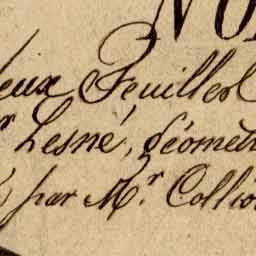 NO
eux Feuilles
r Lesné, Géomèt
par Mr. Collio